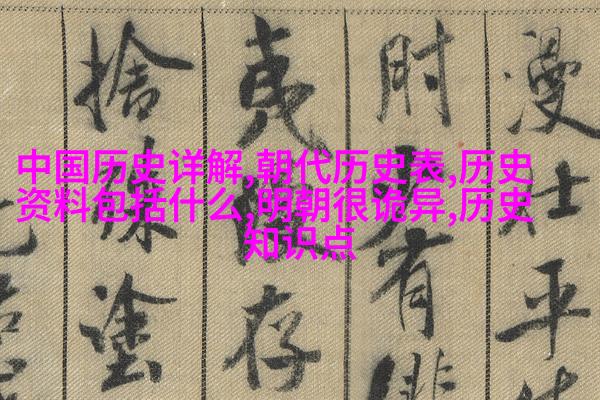 中国历史详解,朝代历史表,历史
资料包括什么,明朝很诡异,历史
知识点
漫仕平
有
夷存
捨殊塗